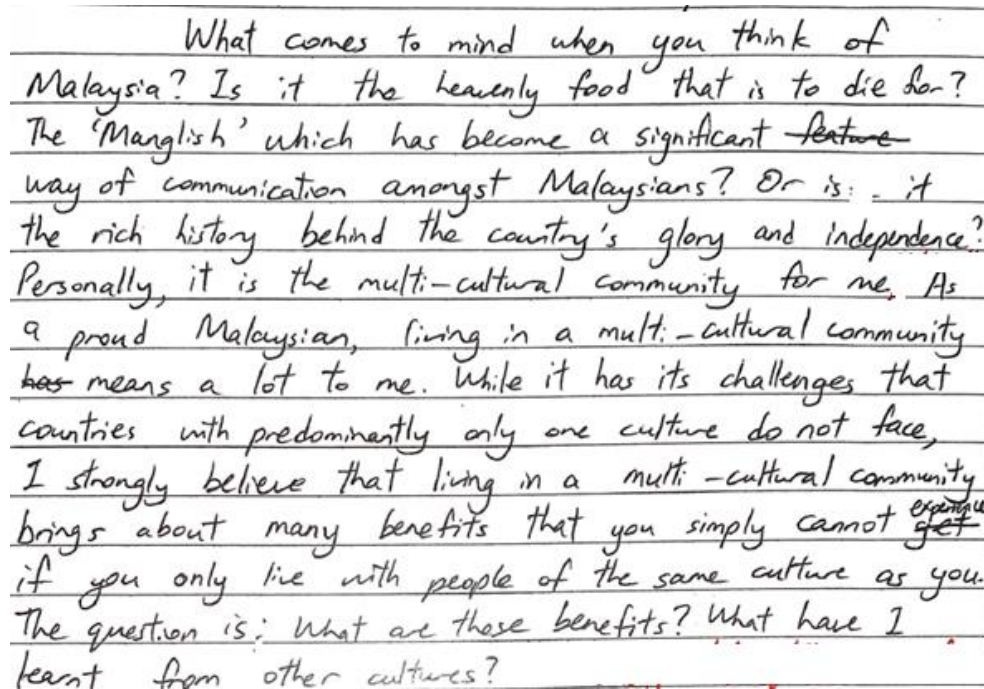 What comes to mind when you think of
Malaysia? Is it the heavenly food that is to die for?
The 'Manglish' which has become a significant feature
way of communication amongst Malaysians? Or is it
the rich history behind the country's glory and independence?
Personally, it is the multi-cultural community for me. As
a proud Malaysian, living in a multi-cultural community
has means a lot to me. While it has its challenges that
countries with predominantly only one culture do not face,
I strongly believe that living in a multi-cultural community
brings about many benefits that you simply cannot get experience
if you only live with people of the same culture as you.
The question is: What are those benefits? What have I
learnt from other cultures?